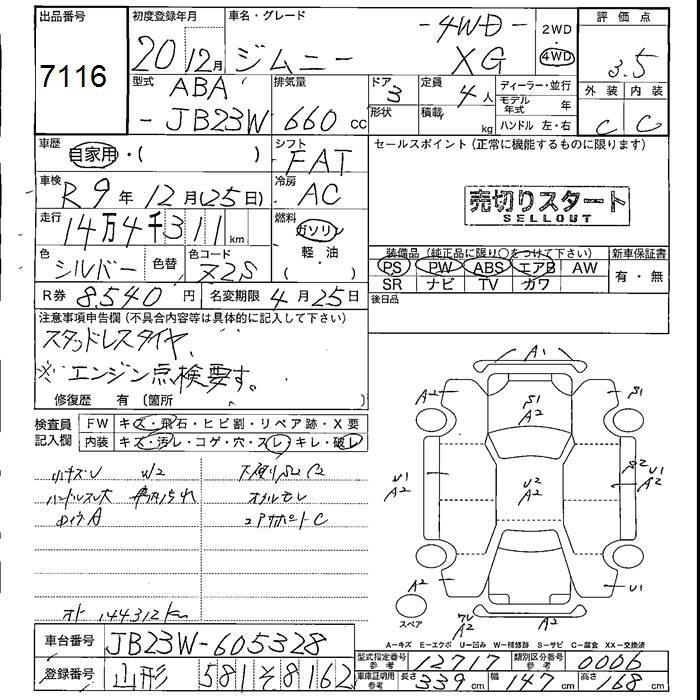 出品番号
7116
初度登録年月
20 12月
車名・グレード
ジムニー
-4WD-
XG
2WD
・
4WD
評価点
3.5
外装 内装
C C
型式
ABA
-JB23W
排気量
660 cc
ドア
3
形状
定員
4 人
積載
kg
ディーラー・並行
モデル年式 年
ハンドル 左・右
車歴
自家用・( )
シフト
FAT
車検
R9年12月(25日)
冷房
AC
走行
14万4千311 km
燃料
ガソリン
軽・油
・
色
シルバー
色替
色コード
Z2S
R券 8,540 円
名変期限 4月25日
セールスポイント (正常に機能するものに限ります)
売切りスタート
SELLOUT
装備品 (純正品に限り○をつけて下さい)
新車保証書
PS PW ABS エアB AW
SR ナビ TV カワ
有・無
後日品
注意事項申告欄 (不具合内容等は具体的に記入して下さい)
スタッドレスタイヤ
※エンジン点検要す。
修復歴 有 〔箇所 〕
検査員
記入欄
FW キズ・飛石・ヒビ割・リペア跡・X要
内装 キズ・汚レ・コゲ・穴・スレ・キレ・破レ
小キズU W2
ハンドルスレ大
オイルモレ
コアサポートC
メーター 144312km
A1
A2
S1
A1
S1
A2
U1
A2
U2
A2
S2
U1
A2
A2
U1
A2
スペア
A-キズ E-エクボ U-凹み W-補修跡 S-サビ C-腐食 XX-交換済
車台番号 JB23W-605328
登録番号 山形 581 そ 8162
型式指定番号
参考
12717
類別区分番号
参考
0006
車庫証明用
参考
長さ 339 cm 幅 147 cm 高さ 168 cm